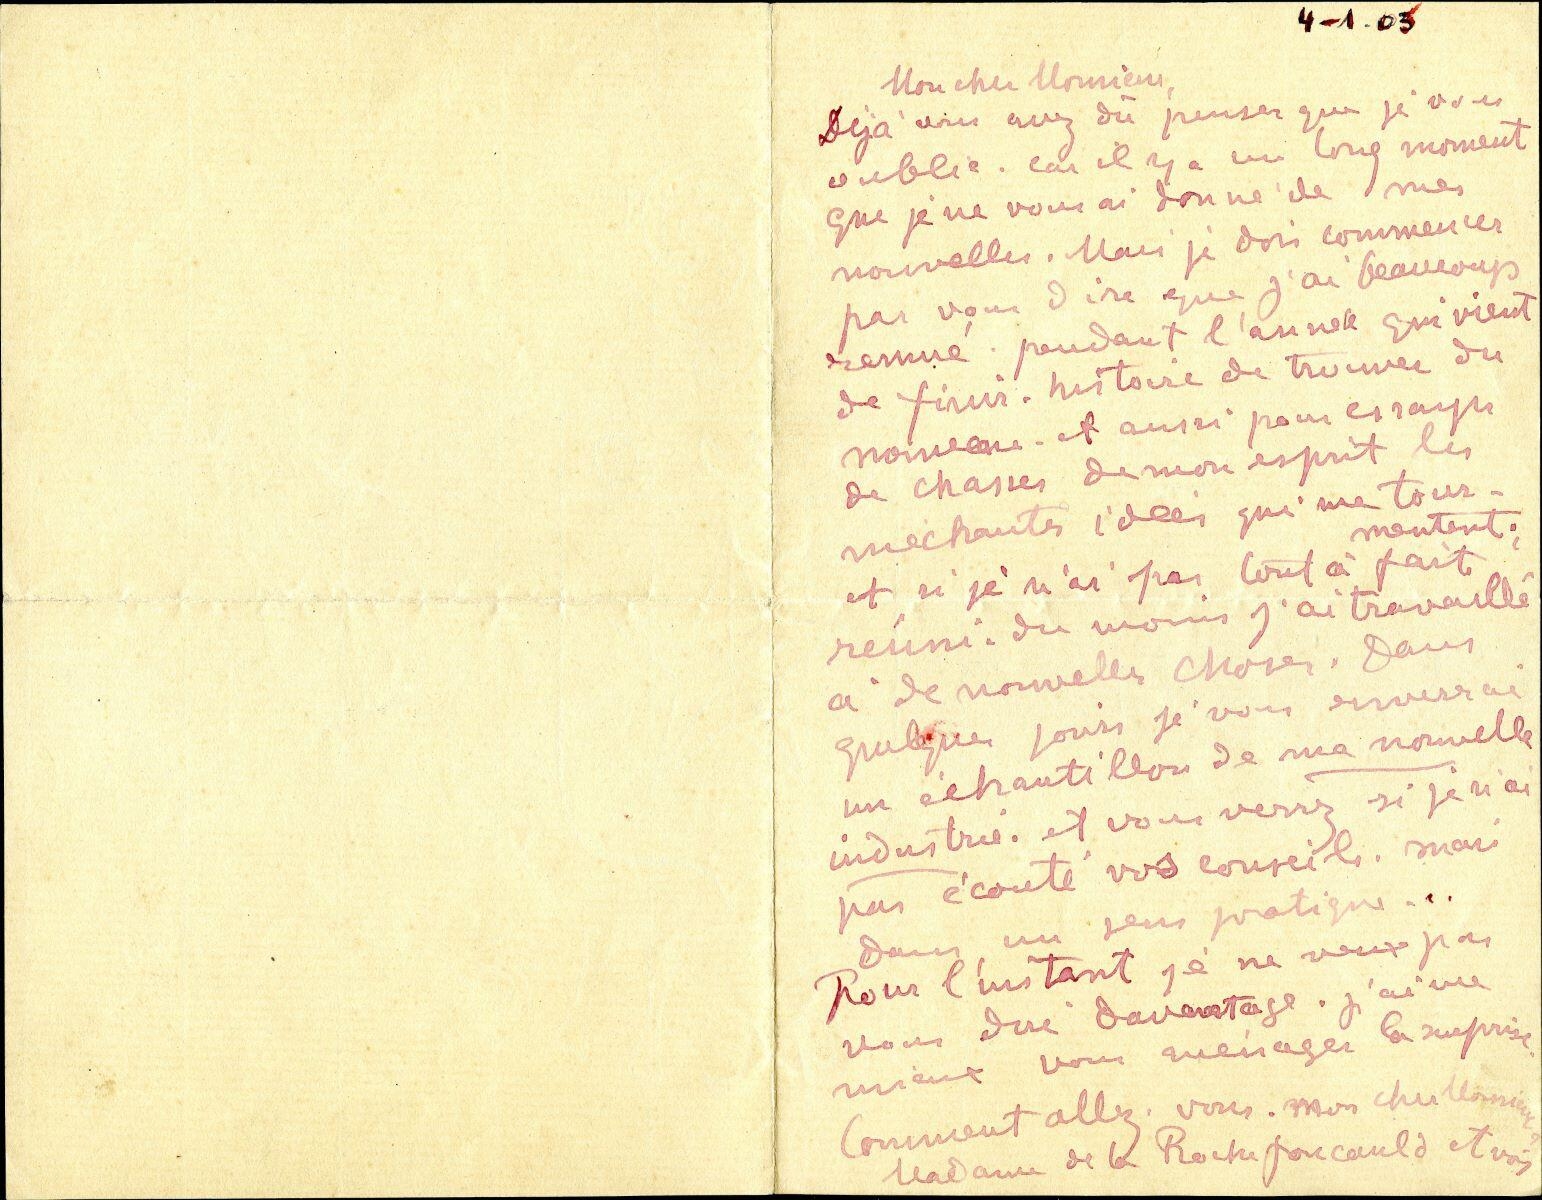 4-1.03
Mon cher Monsieur,
Déjà vous avez dû penser que je vous
oublie. car il y a un long moment
que je ne vous ai donné de mes
nouvelles. Mais je dois commencer
par vous dire que j'ai beaucoup
remué. pendant l'année qui vient
de finir. histoire de trouver du
nouveau. et aussi pour essayer
de chasser de mon esprit les
méchantes idées qui me tour-
mentent;
et si je n'ai pas tout à fait
réussi. du moins j'ai travaillé
à de nouvelles choses. Dans
quelques jours je vous enverrai
un échantillon de ma nouvelle
industrie. et vous verrez si je n'ai
pas écouté vos conseils. mais
dans un sens pratique...
Pour l'instant je ne veux pas
vous dire davantage. j'aime
mieux vous ménager la surprise.
Comment allez. vous. mon cher Monsieur?
Madame de la Rochefoucauld et vos